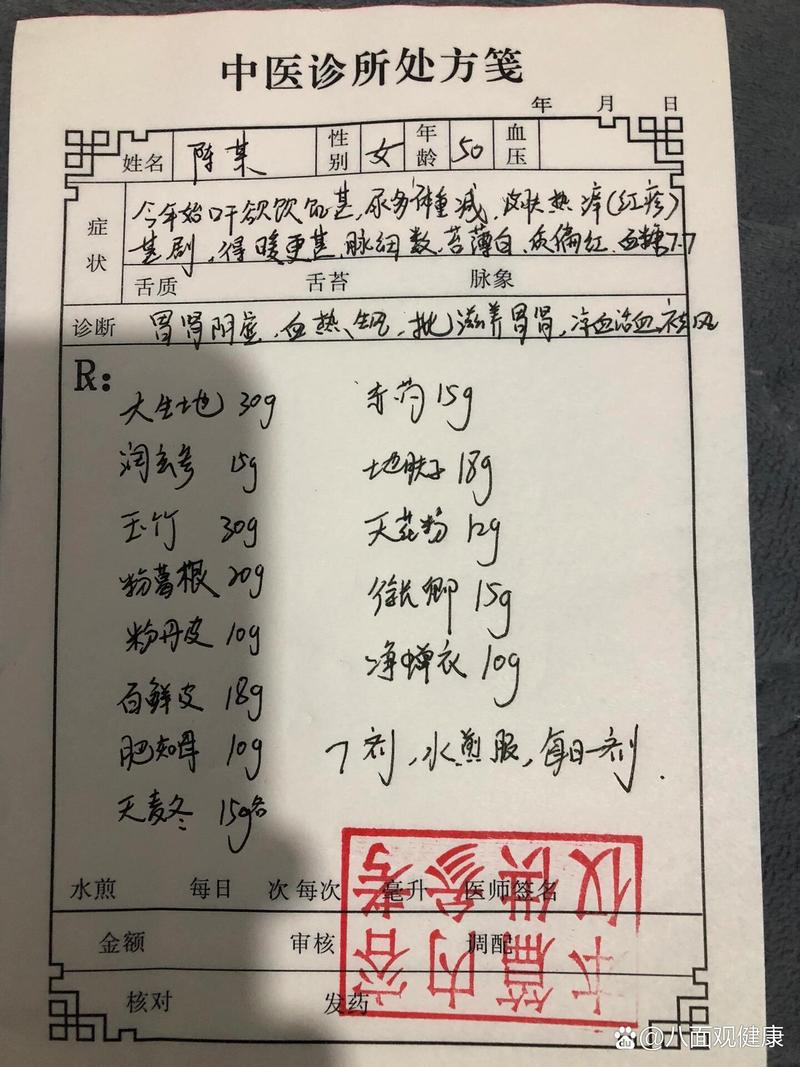 中医诊所处方笺
年 月 日
姓名 陈某 性别 女 年龄 50 血压
症状 今年始口干欲饮饥甚,尿多体重减,皮肤热痒(红疹)
甚剧,得暖更甚,脉细数,苔薄白,质偏红,血糖7.7
舌质 舌苔 脉象
诊断 胃肾阴虚,血热生风,拟滋养胃肾,凉血活血祛风
R:
大生地 30g 赤芍 15g
润玄参 15g 地肤子 18g
玉竹 30g 天花粉 12g
粉葛根 20g 徐长卿 15g
粉丹皮 10g 净蝉衣 10g
白鲜皮 18g
肥知母 10g 7剂,水煎服,每日一剂.
天麦冬 15g各
水煎 每日 次 每次 毫升 医师签名
金额 审核 调配
核对 发药
本篇内容
仅供参考
@八面观健康